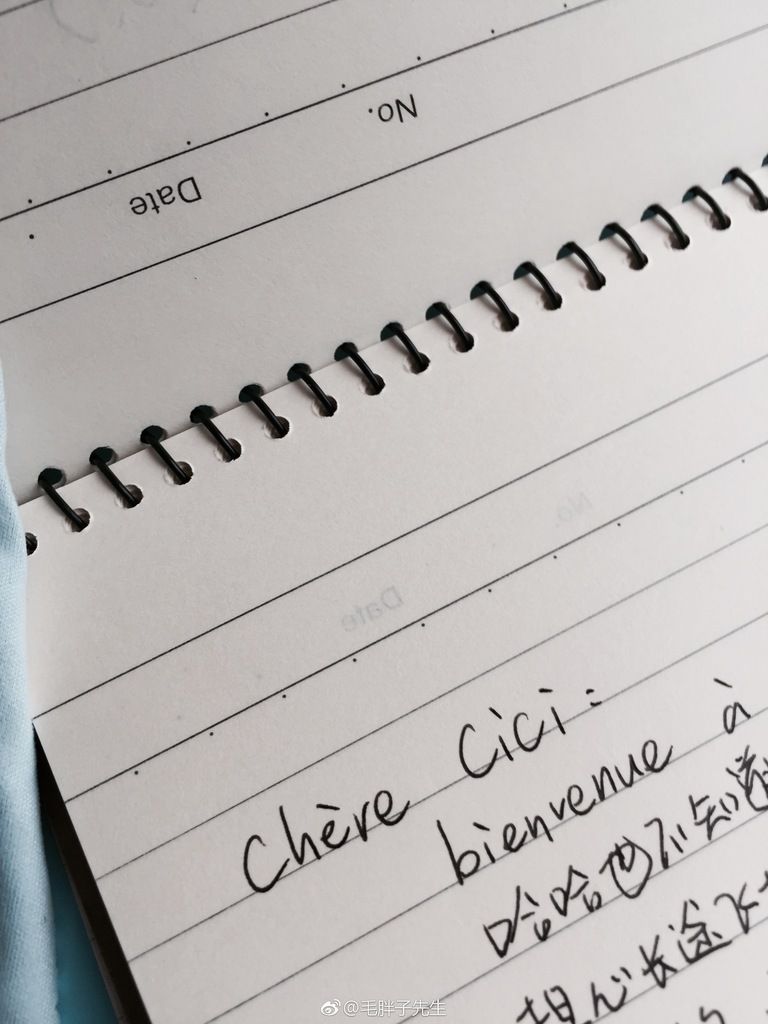 No.
Date
No.
Date
Chère Cici:
bienvenue à
哈哈也不知道
担心长途飞
@毛胖子先生